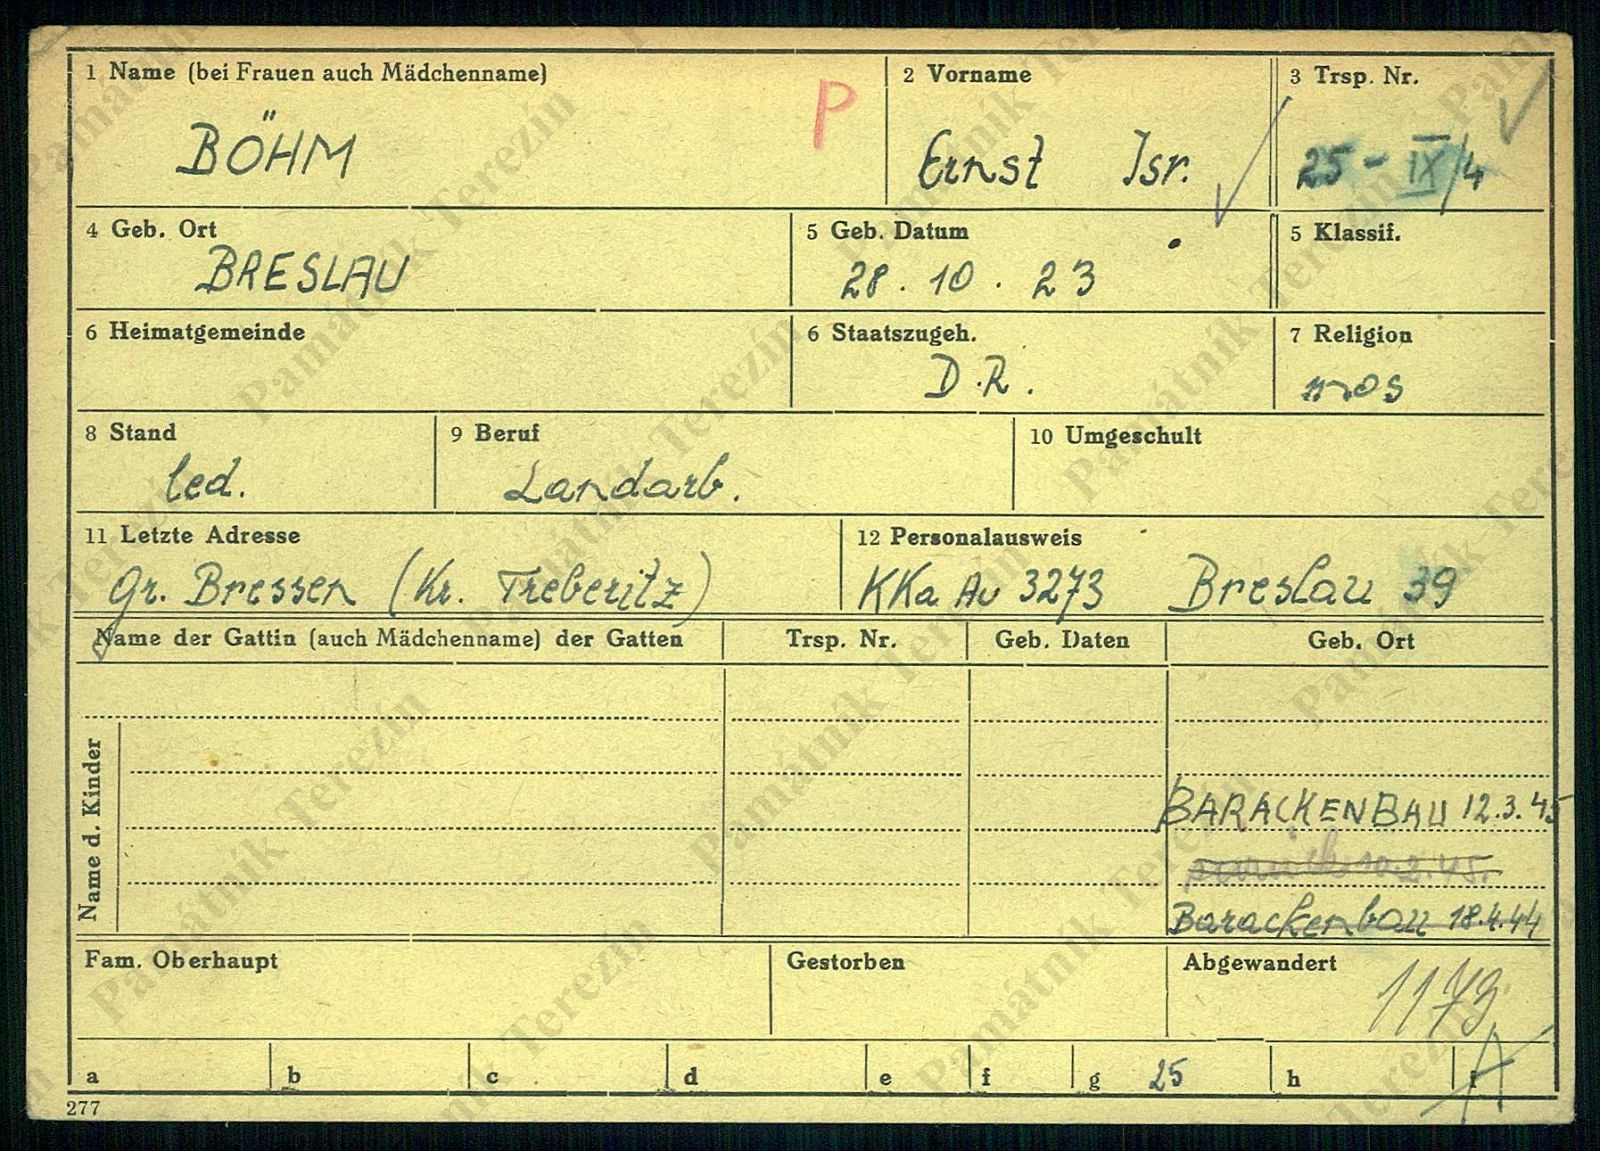 1 Name (bei Frauen auch Mädchenname)
BÖHM
P
2 Vorname
Ernst Isr.
3 Trsp. Nr.
25 - IX/4
4 Geb. Ort
BRESLAU
5 Geb. Datum
28. 10. 23
5 Klassif.
6 Heimatgemeinde
6 Staatszugeh.
D.R.
7 Religion
mos
8 Stand
led.
9 Beruf
Landarb.
10 Umgeschult
11 Letzte Adresse
Gr. Bressen (Kr. Treberitz)
12 Personalausweis
KKa Au 3273 Breslau 39
Name der Gattin (auch Mädchenname) der Gatten
Trsp. Nr.
Geb. Daten
Geb. Ort
Name d. Kinder
BARACKENBAU 12.3.45
zurück 10.2.45.
Barackenbau 18.4.44
Fam. Oberhaupt
Gestorben
Abgewandert
1179
a b c d e f g 25 h
277
Památník Terezín